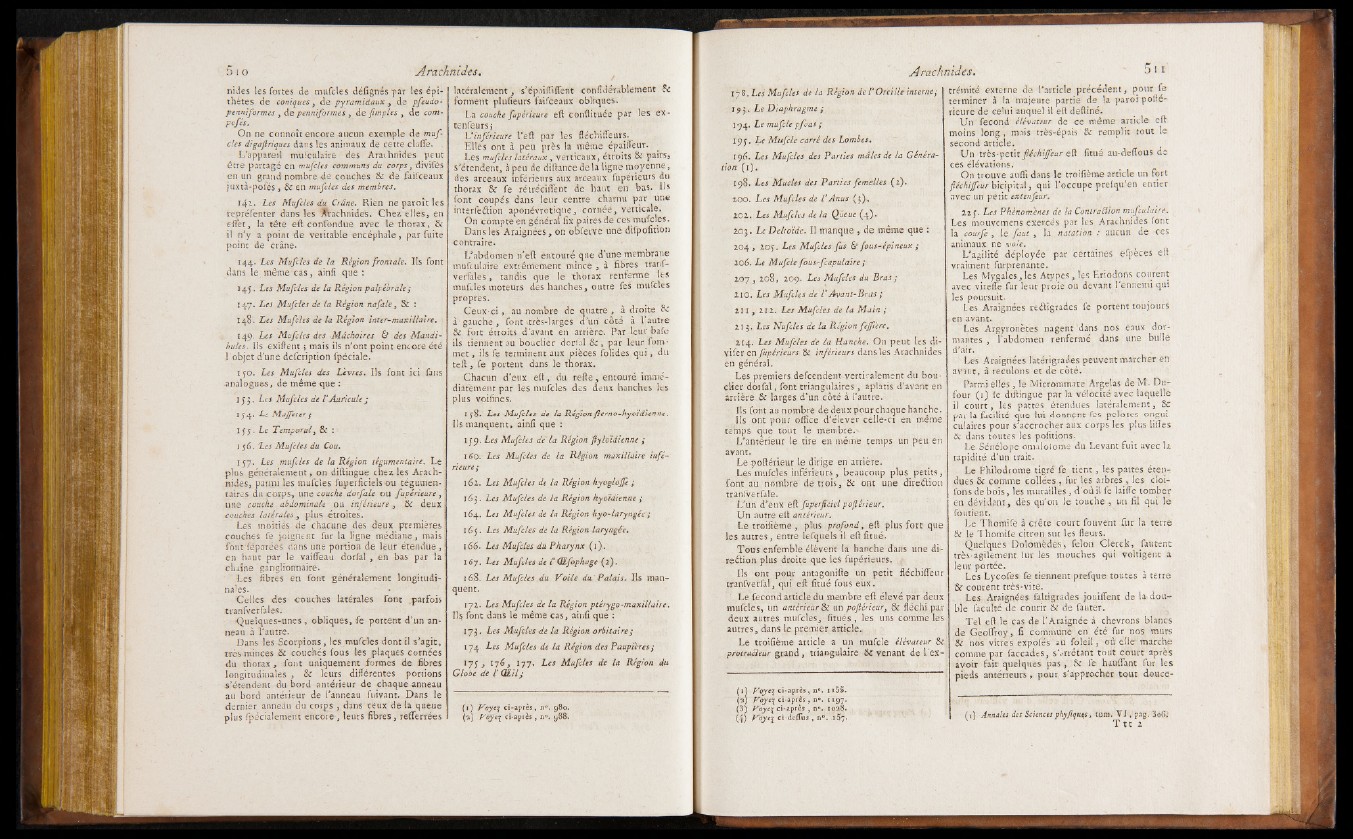 510 Arachnides.
nides les sortes de muscles désignés par les épi-
thètes de coniques, de pyramidaux, de pseudo-
penniformes, de penniformes, de simples, de com-
posés.
On ne connoît encore aucun exemple de mus-
cles digastriques dans les animaux de cette classe.
L'appareil musculaire des Arachnides peut
être partagé en muscles communs du corps, divisés
en un grand nombre de couches & de faisceaux
juxtà-posés, & en muscles des membres.
142. Les Muscles du Crâne. Rien ne paroît les
représenter dans les Arachnides. Chez elles, en
effet, la tête est confondue avec le thorax, &
il n'y a point de véritable encéphale, par suite
point de crâne.
144. Les Muscles de la Région frontale. Ils sont
dans le même cas, ainsi que :
145. Les Muscles de la Région palpébrale;
147. Les Muscles de la Région nasale, & :
148. Les Muscles de la Région inter-maxillaire.
149. Les Muscles des Mâchoires & des Mandi-
bules. Ils existent ; mais ils n'ont point encore été
l'objet d'une description spéciale.
150. Les Muscles des Lèvres. Ils sont ici sans
analogues, de même que :
153. Les Muscles de l'Auricule ;
154. Le Masseter ;
155. Le Temporal, & :
156. Les Muscles du Cou.
157. Les muscles de la Région tégumentaire. Le
plus généralement, on distingue chez les Arach-
nides, parmi les muscles superficiels ou tégumen-
taires du corps, une couche dorsale ou supérieure,
une couche abdominale ou inférieure, & deux
couches latérales, plus étroites.
Les moitiés de chacune des deux premières
couches se joignent sur la ligne médiane, mais
sont séparées dans une portion de leur étendue,
en haut par le vaisseau dorsal, en bas par la
chaîne ganglionnaire.
Les fibres en sont généralement longitudi-
nales.
Celles des couches latérales sont parfois
transversales.
Quelques-unes, obliques, se portent d'un an-
neau à l'autre.
Dans les Scorpions, les muscles dont il s'agit,
très minces & couchés sous les plaques cornées
du thorax, sont uniquement formés de fibres
longitudinales, & leurs différentes portions
s'étendent du bord antérieur de chaque anneau
au bord antérieur de l'anneau suivant. Dans le
dernier anneau du corps, dans ceux de la queue
plus spécialement encore, leurs fibres, resserrées
latéralement, s'épaississent considérablement &
forment plusieurs faisceaux obliques.
La couche supérieure est constituée par les ex-
tenseurs ;
L'inférieure l'est par les fléchisseurs.
Elles ont à peu près la même épaisseur.
Les muscles latéraux, verticaux, étroits & pairs,
s'étendent, à peu de distance de la ligne moyenne,
des arceaux inférieurs aux arceaux supérieurs du
thorax & se rétrécissent de haut en bas. Ils
sont coupés dans leur centre charnu par une
intersection aponévrotique, cornée, verticale.
On compte en général six paires de ces muscles.
Dans les Araignées, on observe une disposition
contraire.
L'abdomen n'est entouré que d'une membrane
musculaire extrêmement mince, à fibres trans-
versales, tandis que le thorax renferme les
muscles moteurs des hanches, outre ses muscles
propres.
Ceux-ci, au nombre de quatre, à droite &
à gauche, sont très-larges d'un côté à l'autre
& fort étroits d'avant en arrière. Par leur base
ils tiennent au bouclier dorsal &, par leur som-
met, ils se terminent aux pièces solides qui, du
test, se portent dans le thorax.
Chacun d'eux est, du reste, entouré immé-
diatement par les muscles des deux hanches les
plus voisines.
158. Les Muscles de la Région sterno-hyoïdienne.
Ils manquent, ainsi que :
159. Les Muscles de la Région styloïdienne ;
160. Les Muscles de la Région maxillaire infé-
rieure ;
162. Les Muscles de la Région hyoglosse ;
163. Les Muscles de la Région hyoïdienne ;
164. Les Muscles de la Région hyo-laryngée ;
165. Les Muscles de la Région laryngée.
166. Les Muscles du Pharynx (1).
167. Les Muscles de l'Œsophage (2).
168. Les Muscles du Voile du Palais. Ils man-
quent.
172. Les Muscles de la Région ptérygo-maxillaire.
Ils sont dans le même cas, ainsi que :
173. Les Muscles de la Région orbitaire ;
174 Les Muscles de la Région des Paupières ;
175, 176, 177. Les Muscles de la Région du
Globe de l'Œil ;
(1) Voyez ci-après, n°. 980.
(2) Voyez ci-après, n°. 988.
Arachnides. 511
178. Les Muscles de la Région de l'Oreille interne,
193. Le Diaphragme ;
194. Le muscle psoas ;
195. Le Muscle carré des Lombes.
196. Les Muscles des Parties mâles de la Généra-
tion (1).
198. Les Mucles des Parties femelles (2).
200. Les Muscles de l'Anus (3).
202. Les Muscles de la Queue (4).
203. Le Deltoïde. Il manque, de même que :
204, 205. Les Muscles sus & sous-épineux ;
206. Le Muscle sous-scapulaire ;
207, 208, 209. Les Muscles du Bras ;
210. Les Muscles de l'Avant-Bras ;
211, 212. Les Muscles de la Main ;
213. Les Muscles de la Région fessière.
214. Les Muscles de la Hanche. On peut les di-
viser en supérieurs & inférieurs dans les Arachnides
en général.
Les premiers descendent verticalement du bou-
clier dorsal, sont triangulaires, aplatis d'avant en
arrière & larges d'un côté à l'autre.
Ils sont au nombre de deux pour chaque hanche.
Ils ont pour office d'élever celle-ci en même
temps que tout le membre.
L'antérieur le tire en même temps un peu en
avant.
Le postérieur le dirige en arrière.
Les muscles inférieurs, beaucoup plus petits,
sont au nombre de trois, & ont une direction
transversale.
L'un d'eux est superficiel postérieur.
Un autre est antérieur.
Le troisième, plus profond, est plus fort que
les autres, entre lesquels il est situé.
Tous ensemble élèvent la hanche dans une di-
rection plus droite que les supérieurs.
Ils ont pour antagoniste un petit fléchisseur
transversal, qui est situé sous eux.
Le second article du membre est élevé par deux
muscles, un antérieur & un postérieur, & fléchi par
deux autres muscles, situés, les uns comme les
autres, dans le premier article.
Le troisième article a un muscle élévateur &
protracteur grand, triangulaire & venant de l'ex-
(1) Voyez ci-après, n°. 1168.
(2) Voyez ci-après, n°. 1197.
(3) Voyez ci-après, n°. 1028.
(4) Voyez ci-dessus, n°. 157.
trémité externe de l'article précédent, pour se
terminer à la majeure partie de la paroi posté-
rieure de celui auquel il est destiné.
Un second élévateur de ce même article est
moins long, mais très-épais & remplit tout le
second article.
Un très-petit fléchisseur est situé au-dessous de
ces élévations.
On trouve aussi dans le troisième article un fort
fléchisseur bicipital, qui l'occupe presqu'en entier
avec un petit extenseur.
225. Les Phénomènes de la Contraction musculaire.
Les mouvemens exercés par les Arachnides sont
la course, le saut, la natation : aucun de ces
animaux ne vole.
L'agilité déployée par certaines espèces est
vraiment surprenante.
Les Mygales, les Atypes, les Eriodons courent
avec vitesse sur leur proie ou devant l'ennemi qui
les poursuit.
Les Araignées rectigrades se portent toujours
en avant.
Les Argyronètes nagent dans nos eaux dor-
mantes, l'abdomen renfermé dans une bulle
d'air.
Les Araignées latérigrades peuvent marcher en
avant, à reculons et de côté.
Parmi elles, le Micrommate Argelas de M. Du-
four (1) se distingue par la vélocité avec laquelle
il court, les pattes étendues latéralement, &
par la facilité que lui donnent ses pelotes ongui-
culaires pour s'accrocher aux corps les plus lisses
& dans toutes les positions.
Le Sénélope omalosome du Levant fuit avec la
rapidité d'un trait.
Le Philodrome tigré se tient, les pattes éten-
dues & comme collées, sur les arbres, les cloi-
sons de bois, les murailles, d'où il se laisse tomber
en dévidant, dès qu'on le touche, un fil qui le
soutient.
Le Thomise à crête court souvent sur la terre
& le Thomise citron sur les fleurs.
Quelques Dolomèdes, selon Clerck, sautent
très-agilement sur les mouches qui voltigent à
leur portée.
Les Lycoses se tiennent presque toutes à terre
& courent très-vite.
Les Araignées saltigrades jouissent de la dou-
ble faculté de courir & de sauter.
Tel est le cas de l'Araignée à chevrons blancs
de Geoffroy, si commune en été sur nos murs
& nos vitres exposés au soleil, où elle marche
comme par saccades, s'arrêtant tout court après
avoir fait quelques pas, & se haussant sur les
pieds antérieurs, pour s'approcher tout douce-
(1) Annales des Sciences physiques, tom. VI, pag. 306.
Ttt 2